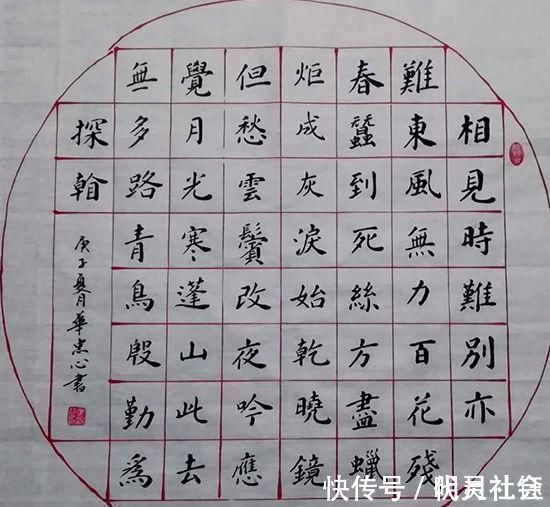 相見時難別亦
難東風無力百花殘
春蠶到死絲方盡蠟
炬成灰淚始乾曉鏡
但愁雲鬢改夜吟應
覺月光寒蓬山此去
無多路青鳥殷勤為
探翰
庚子夏月華忠心書
快传号 /